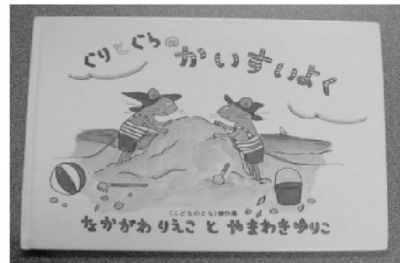 ぐりとぐらの かいすいよく
〈こどものとも〉傑作集
なかがわ りえこ と やまわきゆりこ